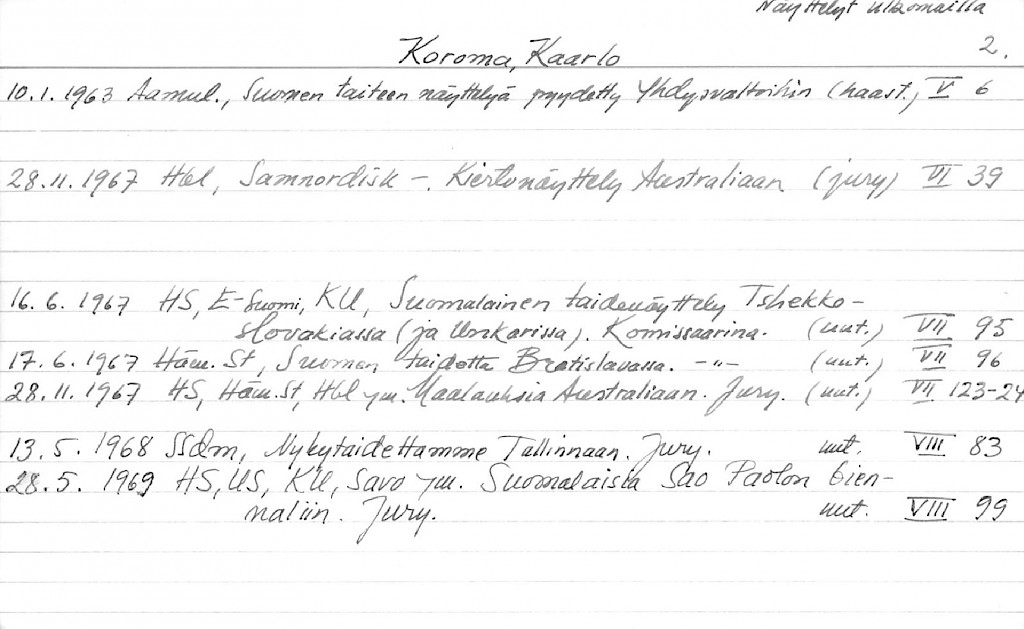 Näyttelyt ulkomailla
2.
Koroma, Kaarlo
10.1.1963 Aamul., Suomen taiteen näyttelyä pyydetty Yhdysvaltoihin (haast.) V 6
28.11.1967 Hbl, Samnordisk -. Kiertonäyttely Australiaan (jury) VI 39
16.6.1967 HS, E-Suomi, KU, Suomalainen taidenäyttely Tshekko-
slovakiassa (ja Unkarissa). Komissaarina. (uut.) VII 95
17.6.1967 Häm.St, Suomen taidetta Bratislavassa. -"- (uut.) VII 96
28.11.1967 HS, Häm.St, Hbl ym. Maalauksia Australiaan. Jury. (uut.) VII 123-24
13.5.1968 SSdm, Nykytaidettamme Tallinnaan. Jury. uut. VIII 83
28.5.1969 HS, US, KU, Savo ym. Suomalaisia Sao Paolon bien-
naliin. Jury. uut. VIII 99